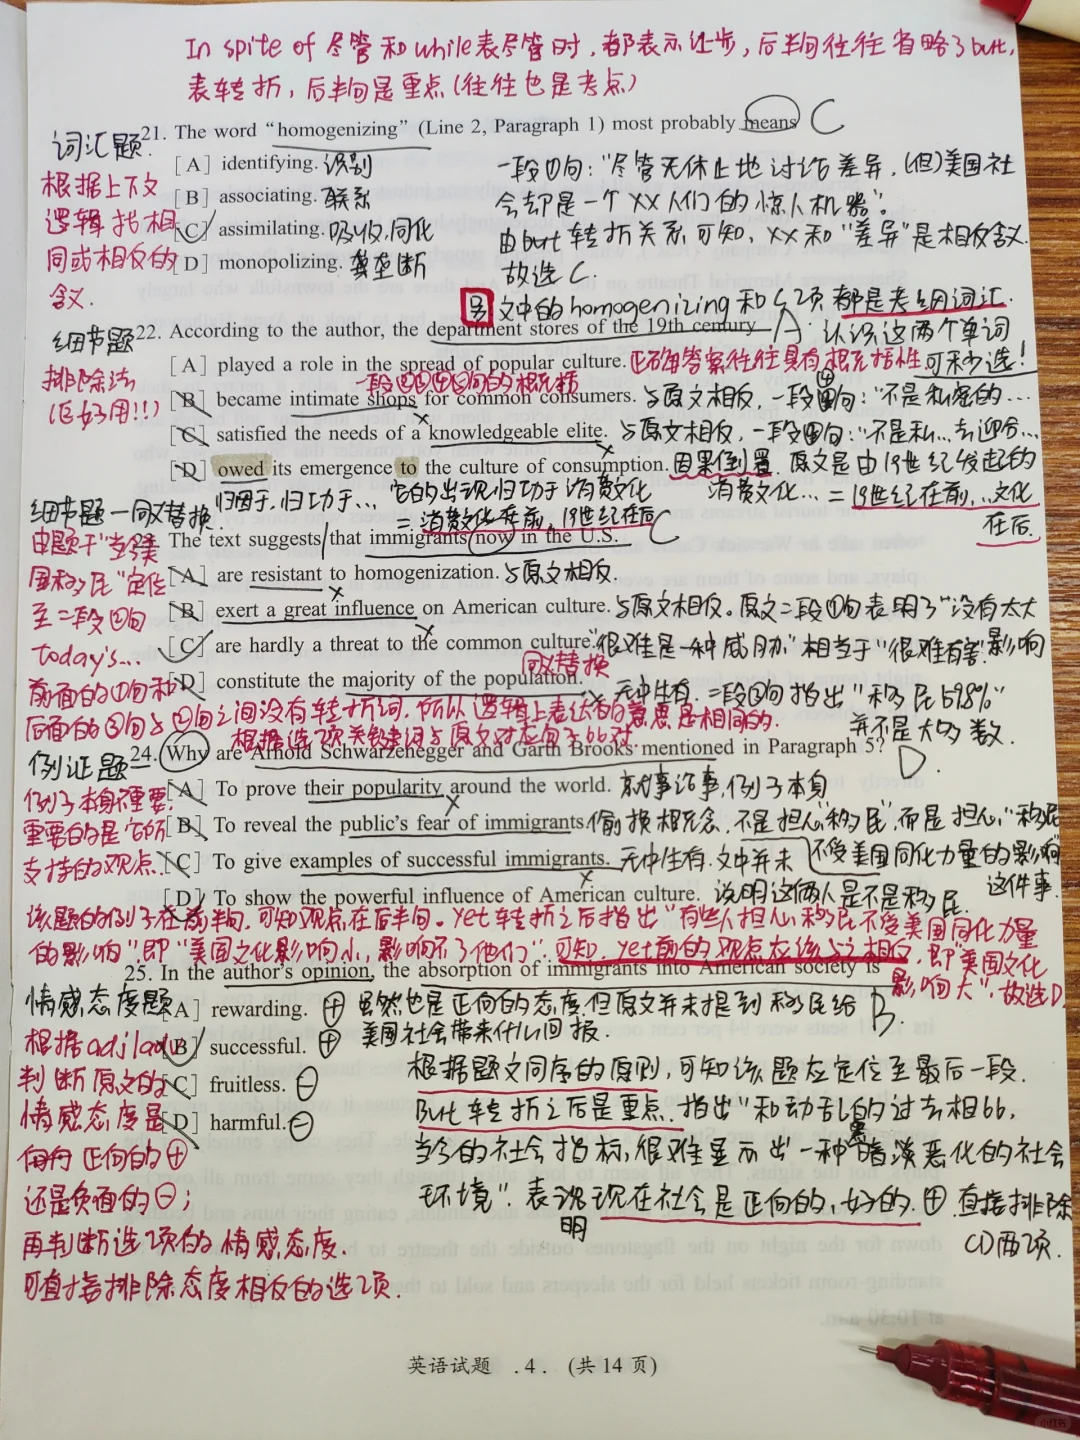 In spite of 尽管和while表尽管时，都表示让步，后半句往往省略了but，
表转折，后半句是重点(往往也是考点)
21. The word “homogenizing” (Line 2, Paragraph 1) most probably means C
词汇题
[A] identifying. 识别
[B] associating. 联系
[C] assimilating. 吸收,同化
[D] monopolizing. 垄断
根据上下文
逻辑找相
同或相反的
含义.
一段①句：“尽管无休止地讨论差异，(但)美国社
会却是一个XX人们的惊人机器”。
由but转折关系可知，XX和“差异”是相反含义.
故选C.
另 文中的homogenizing和C项都是考纲词汇.
认识这两个单词
可秒选！
细节题
22. According to the author, the department stores of the 19th century A
排除法
(巨好用!!)
[A] played a role in the spread of popular culture. 正确答案往往具有概括性
一段②③④⑤句的概括
[B] became intimate shops for common consumers. 与原文相反，一段④句：“不是私密的…
[C] satisfied the needs of a knowledgeable elite. 与原文相反，一段④句：“不是私…去迎合…
[D] owed its emergence to the culture of consumption. 因果倒置. 原文是由19世纪发起的
归因于,归功于… 它的出现归功于消费文化 消费文化…=19世纪在前,…文化
=消费文化在前，19世纪在后 在后.
细节题—同义替换
23. The text suggests that immigrants now in the U.S. C
由题干“当今美
国移民”定位
至二段②句
today's…
前面的①句和
后面的③句与②句之间没有转折词，所以逻辑上表达的意思是相同的.
[A] are resistant to homogenization. 与原文相反.
[B] exert a great influence on American culture. 与原文相反。原文二段①句表明了“没有太大
影响
[C] are hardly a threat to the common culture. “很难是一种威胁”相当于“很难有害”.
同义替换
[D] constitute the majority of the population. 无中生有. 二段③句指出“移民占9.8%”
并不是大多数.
根据选项关键词与原文对应句子比对
例证题
24. Why are Arnold Schwarzenegger and Garth Brooks mentioned in Paragraph 5? D.
例子本身不重要,
重要的是它所
支持的观点.
[A] To prove their popularity around the world. 就事论事,例子本身
[B] To reveal the public's fear of immigrants. 偷换概念. 不是担心“移民”,而是担心“移民
不受美国同化力量的影响”
这件事.
[C] To give examples of successful immigrants. 无中生有. 文中并未
[D] To show the powerful influence of American culture. 说明这俩人是不是移民.
该题的例子在前半句,可知观点在后半句。yet转折之后指出“有些人担心移民不受美国同化力量
的影响”即“美国文化影响小,影响不了他们”. 可知, yet前的观点应该与之相反, 即“美国文化
影响大”. 故选D.
25. In the author's opinion, the absorption of immigrants into American society is
情感态度题
[A] rewarding. ⊕ 虽然也是正向的态度,但原文并未提到移民给 B.
美国社会带来什么回报.
[B] successful. ⊕
[C] fruitless. ⊖
[D] harmful. ⊖
根据adj/adv
判断原文的
情感态度是
正向的⊕
还是负面的⊖;
再判断选项的情感态度.
可直接排除态度相反的选项.
根据题文同序的原则,可知该题应定位至最后一段.
But转折之后是重点. 指出“和动乱的过去相比,
当今的社会指标,很难显示出一种黑暗淡恶化的社会
环境”. 表明现在社会是正向的,好的. ⊕ 直接排除
CD两项.
英语试题 . 4 . (共 14 页)
小红书